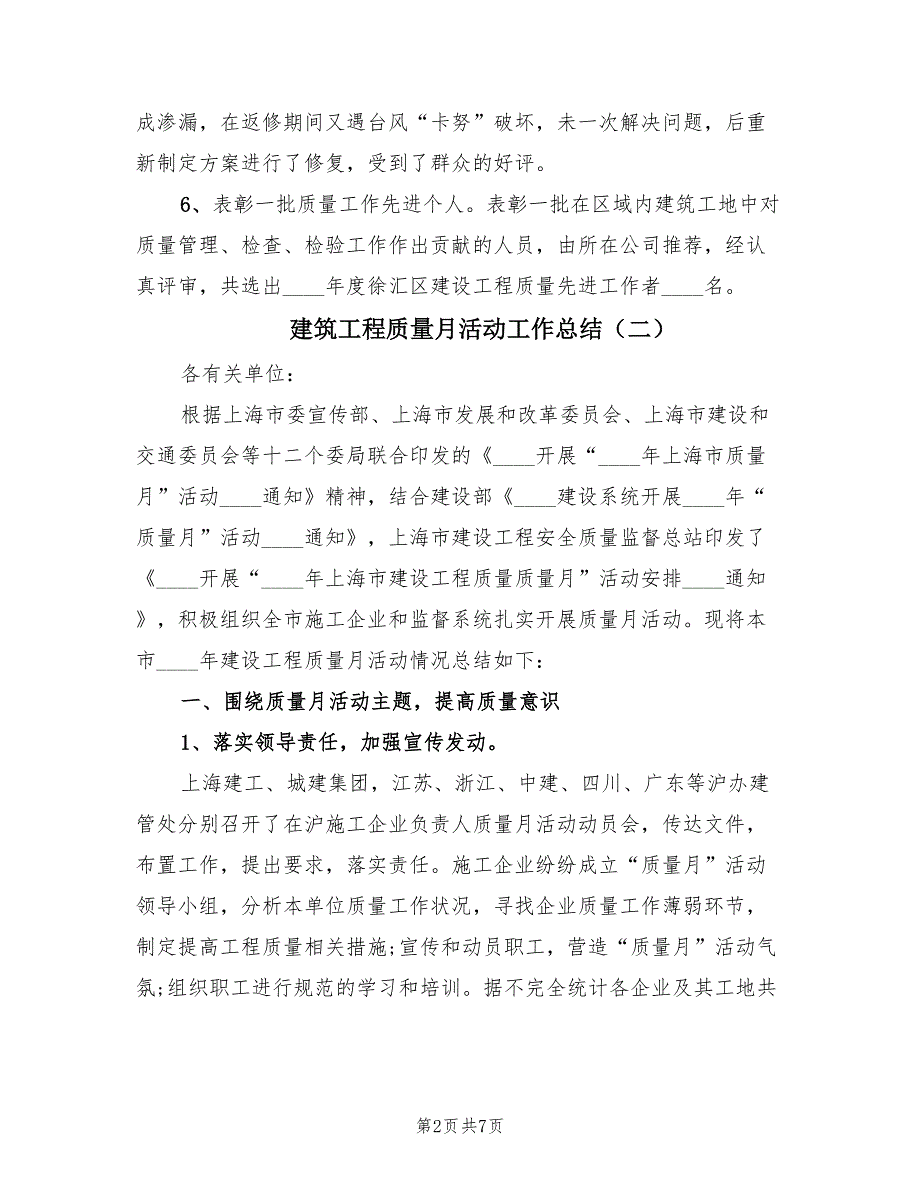 成渗漏，在返修期间又遇台风“卡努”破坏，未一次解决问题，后重
新制定方案进行了修复，受到了群众的好评。
6、表彰一批质量工作先进个人。表彰一批在区域内建筑工地中对
质量管理、检查、检验工作作出贡献的人员，由所在公司推荐，经认
真评审，共选出____年度徐汇区建设工程质量先进工作者____名。
建筑工程质量月活动工作总结（二）
各有关单位：
根据上海市委宣传部、上海市发展和改革委员会、上海市建设和
交通委员会等十二个委局联合印发的《____开展“____年上海市质量
月”活动____通知》精神，结合建设部《____建设系统开展____年“
质量月”活动____通知》，上海市建设工程安全质量监督总站印发了
《____开展“____年上海市建设工程质量质量月”活动安排____通知
》，积极组织全市施工企业和监督系统扎实开展质量月活动。现将本
市____年建设工程质量月活动情况总结如下：
一、围绕质量月活动主题，提高质量意识
1、落实领导责任，加强宣传发动。
上海建工、城建集团，江苏、浙江、中建、四川、广东等沪办建
管处分别召开了在沪施工企业负责人质量月活动动员会，传达文件，
布置工作，提出要求，落实责任。施工企业纷纷成立“质量月”活动
领导小组，分析本单位质量工作状况，寻找企业质量工作薄弱环节，
制定提高工程质量相关措施;宣传和动员职工，营造“质量月”活动气
氛;组织职工进行规范的学习和培训。据不完全统计各企业及其工地共
第2页共7页